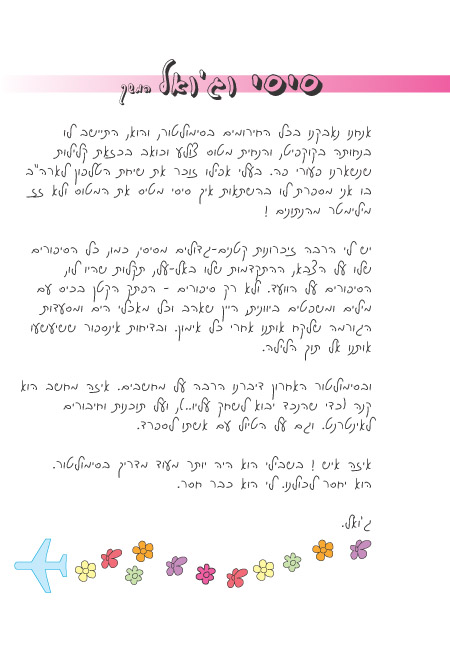 סיסי וג'ואל המשך
אנחנו נאבקנו בכל החירומים בסימולטור, והוא, התיישב לו
בנחותה בקוקפיט, והנחית מטוס צולע וכואב בכזאת קלילות
שנשארנו פעורי פה. בעלי אפילו זוכר את שיחת הטלפון לארה"ב
בו אני מספרת לו בהשתאות איך סיסי מטיס את המטוס ולא זז
מילימטר מהנתונים !
יש לי הרבה זיכרונות קטנים-גדולים מסיסי, כמו, כל הסיפורים
שלו על הצבא, ההתקדמות שלו באל-על, תקלות שהיו לו,
הסיפורים על הוועד. ולא רק סיפורים - הפתק הקטן בכיס עם
מילים ומשפטים ביוונית, היין שאהב וכל מאכלי הים ומסעדות
הגורמה שלקח אותנו אחרי כל אימון. ובדיחות אינספור ששיעשעו
אותנו אל תוך הלילה.
ובסימולטור האחרון דיברנו הרבה על מחשבים. איזה מחשב הוא
קנה (כדי שהנכד יבוא לשחק עליו..), ועל תוכנות וחיבורים
לאינטרנט. וגם על הטיול עם אשתו לספרד.
איזה איש ! בשבילי הוא היה יותר מעוד מדריק בסימולטור.
הוא יחסר לכולנו. לי הוא כבר חסר.
ג'ואל.